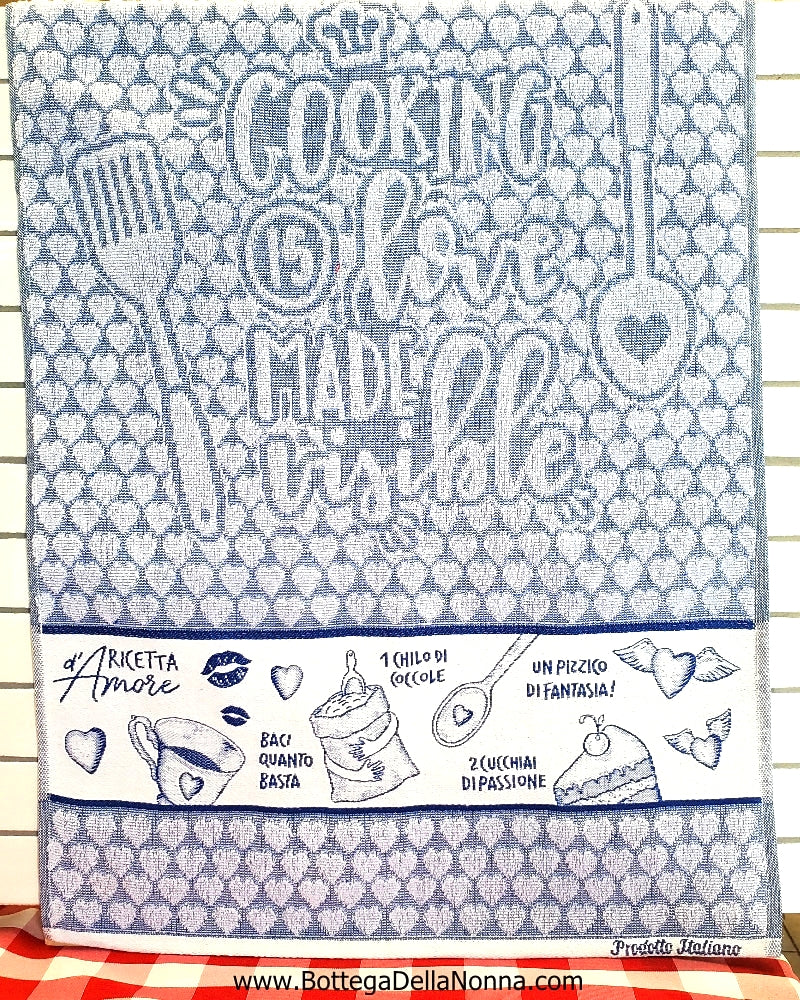 COOKING
IS love
MADE
visible
RICETTA
d'Amore
BACI
QUANTO
BASTA
1 CHILO DI
COCCOLE
2 CUCCHIAI
DI PASSIONE
UN PIZZICO
DI FANTASIA!
Prodotto Italiano
www.BottegaDellaNonna.com